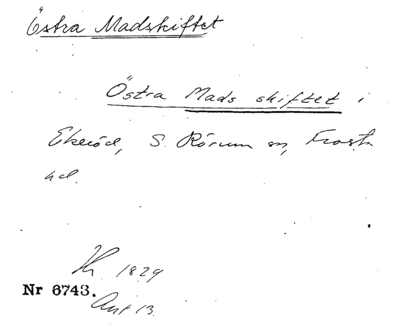 Östra Madskiftet
Östra Mads skiftet i
Ekeröd, S. Rörum sn, Frosta
hd.
1829
Nr 6743.
Akt 13.